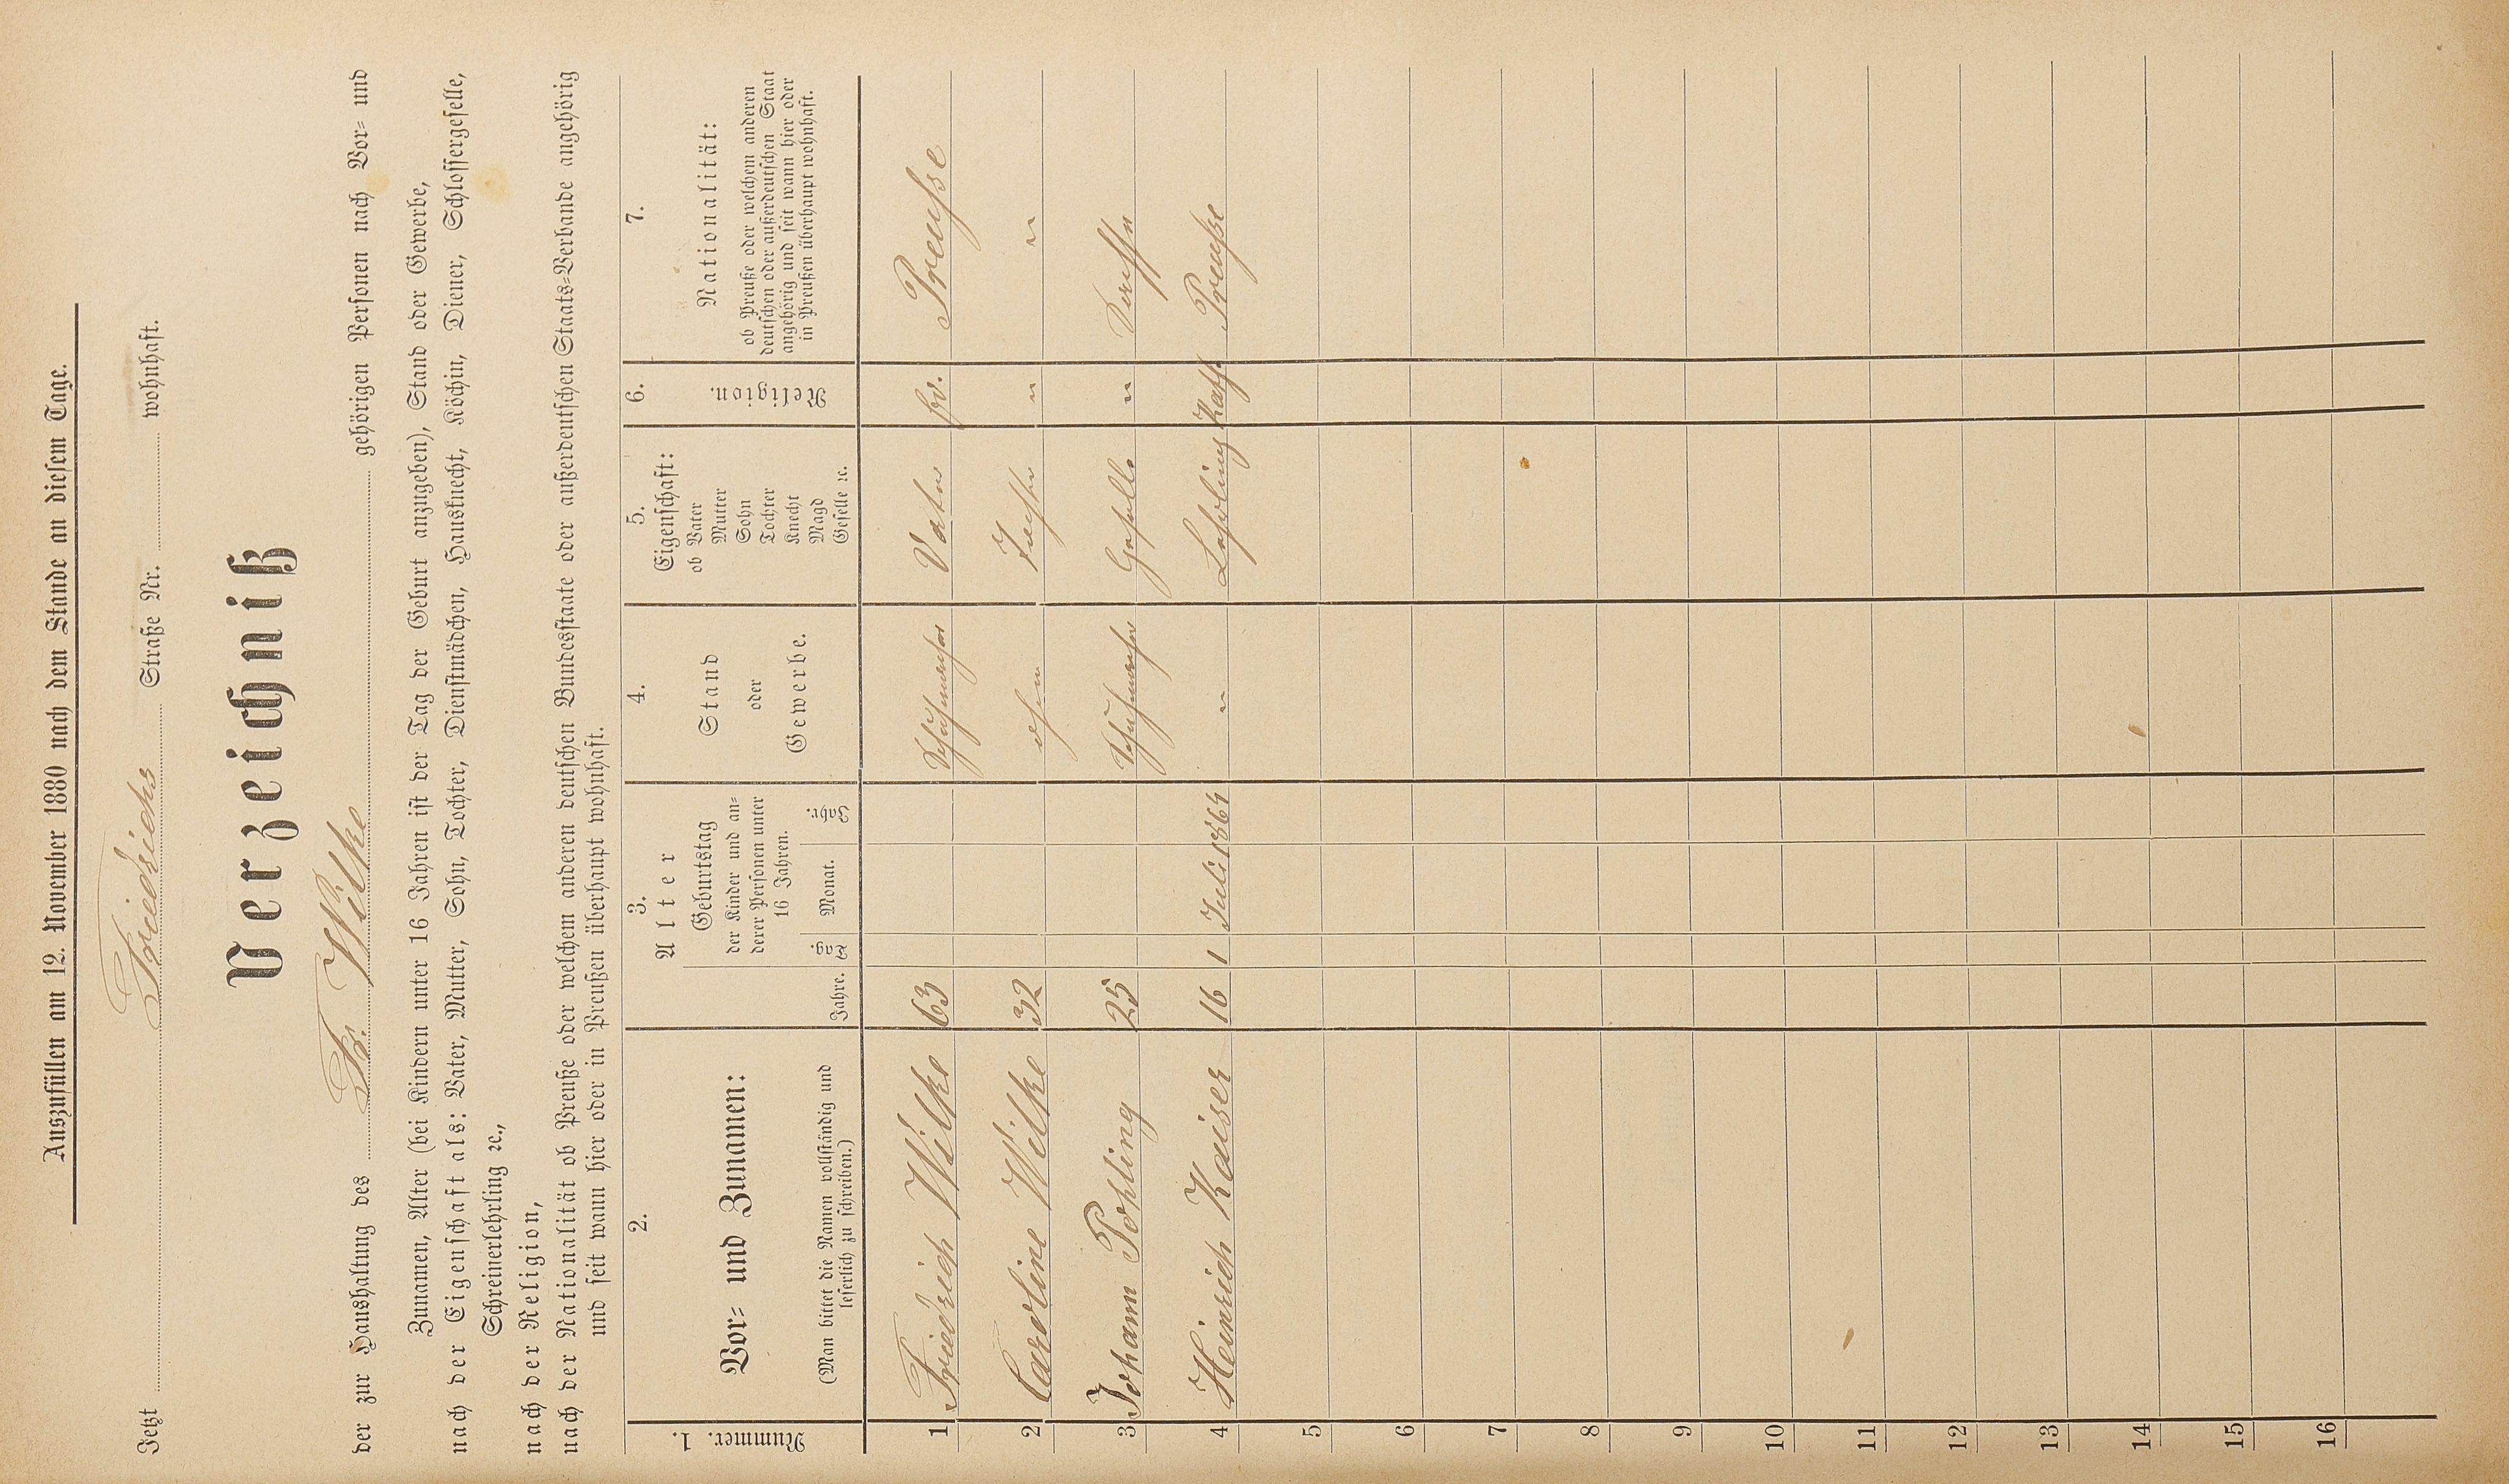 Auszufüllen am 12. November 1880 nach dem Stande an diesem Tage.
Jetzt Friedrichs Straße Nr. wohnhaft.
Verzeichniß
der zur Haushaltung des Fr. Wilke gehörigen Personen nach Vor- und
Zunamen, Alter (bei Kindern unter 16 Jahren ist der Tag der Geburt anzugeben), Stand oder Gewerbe,
nach der Eigenschaft als: Vater, Mutter, Sohn, Tochter, Dienstmädchen, Hausknecht, Köchin, Diener, Schlossergeselle,
Schreinerlehrling ꝛc.,
nach der Religion,
nach der Nationalität ob Preuße oder welchem anderen deutschen Bundesstaate oder außerdeutschen Staats-Verbande angehörig
und seit wann hier oder in Preußen überhaupt wohnhaft.
1.
Nummer.
2.
Vor- und Zunamen:
(Man bittet die Namen vollständig und
leserlich zu schreiben.)
3.
Alter
Jahre.
Geburtstag
der Kinder und an-
derer Personen unter
16 Jahren.
Tag.
Monat.
Jahr.
4.
Stand
oder
Gewerbe.
5.
Eigenschaft:
ob Vater
Mutter
Sohn
Tochter
Knecht
Magd
Geselle ꝛc.
6.
Religion.
7.
Nationalität:
ob Preuße oder welchem anderen
deutschen oder außerdeutschen Staat
angehörig und seit wann hier oder
in Preußen überhaupt wohnhaft.
1 Friedrich Wilke 63 Vater Ev. Preusse
2 Caroline Wilke 32 ohne " "
3 Johann Pohling 25 Geselle "
4 Heinrich Kaiser 16 1 Juli 1864 " Lehrling Kath. Preuße
5
6
7
8
9
10
11
12
13
14
15
16